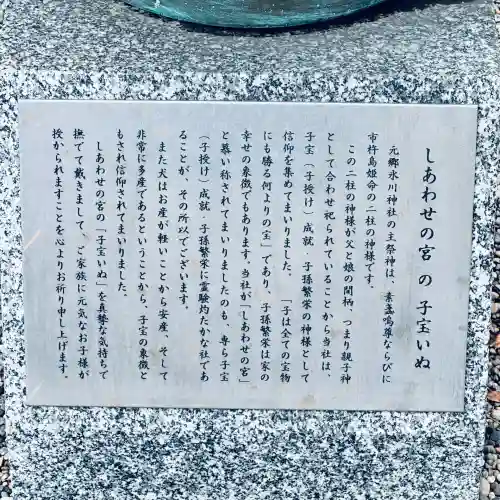 しあわせの宮 の 子宝いぬ
元郷氷川神社の主祭神は、素盞鳴尊ならびに
市杵島姫命の二柱の神様です。
この二柱の神様が父と娘の間柄、つまり親子神
として合わせ祀られていることから当社は、
子宝(子授け)成就・子孫繁栄の神様として
信仰を集めてまいりました。 「子は全ての宝物
にも勝る何よりの宝」であり、子孫繁栄は家の
幸せの象徴でもあります。当社が「しあわせの宮」
と慕い称されてまいりましたのも、専ら子宝
(子授け)成就・子孫繁栄に霊験灼たかな社であ
ることが、その所以でございます。
また犬はお産が軽いことから安産、そして
非常に多産であるということから、子宝の象徴と
もされ信仰されてまいりました。
しあわせの宮の「子宝いぬ」を真摯な気持ちで
撫でて戴きまして、ご家族に元気なお子様が
授かられますことを心よりお祈り申し上げます。